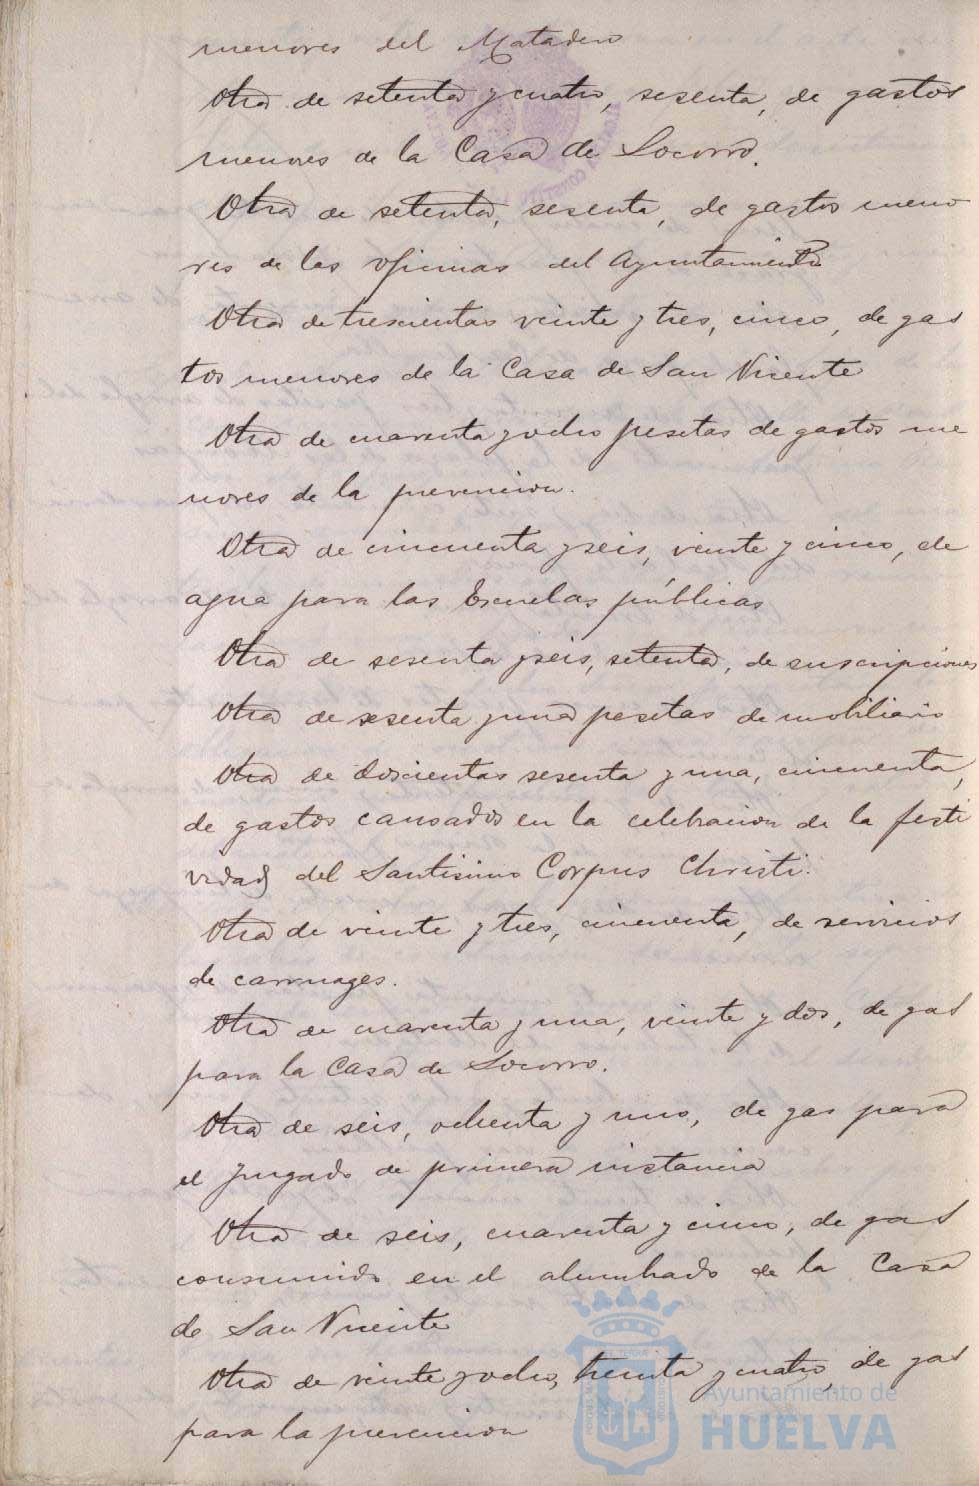 menores del Matadero
Otra de setenta y cuatro, sesenta, de gastos
menores de la Casa de Socorro.
Otra de setenta, sesenta, de gastos meno
res de las oficinas del Ayuntamiento
Otra de trescientas veinte y tres, cinco, de gas
tos menores de la Casa de San Vicente
Otra de cuarenta y ocho pesetas de gastos me
nores de la prevencion.
Otra de cincuenta y seis, veinte y cinco, de
agua para las Escuelas públicas
Otra de sesenta y seis, setenta, de suscripciones
Otra de sesenta y una pesetas de mobiliario
Otra de doscientas sesenta y una, cincuenta,
de gastos causados en la celebracion de la festi
vidad del Santisimo Corpus Christi.
Otra de veinte y tres, cincuenta, de servicios
de carruages.
Otra de cuarenta y una, veinte y dos, de gas
para la Casa de Socorro.
Otra de seis, ochenta y uno, de gas para
el Juzgado de primera instancia
Otra de seis, cuarenta y cinco, de gas
consumido en el alumbrado de la Casa
de San Vicente
Otra de veinte y ocho, treinta y cuatro, de gas
para la prevencion
Ayuntamiento de
HUELVA